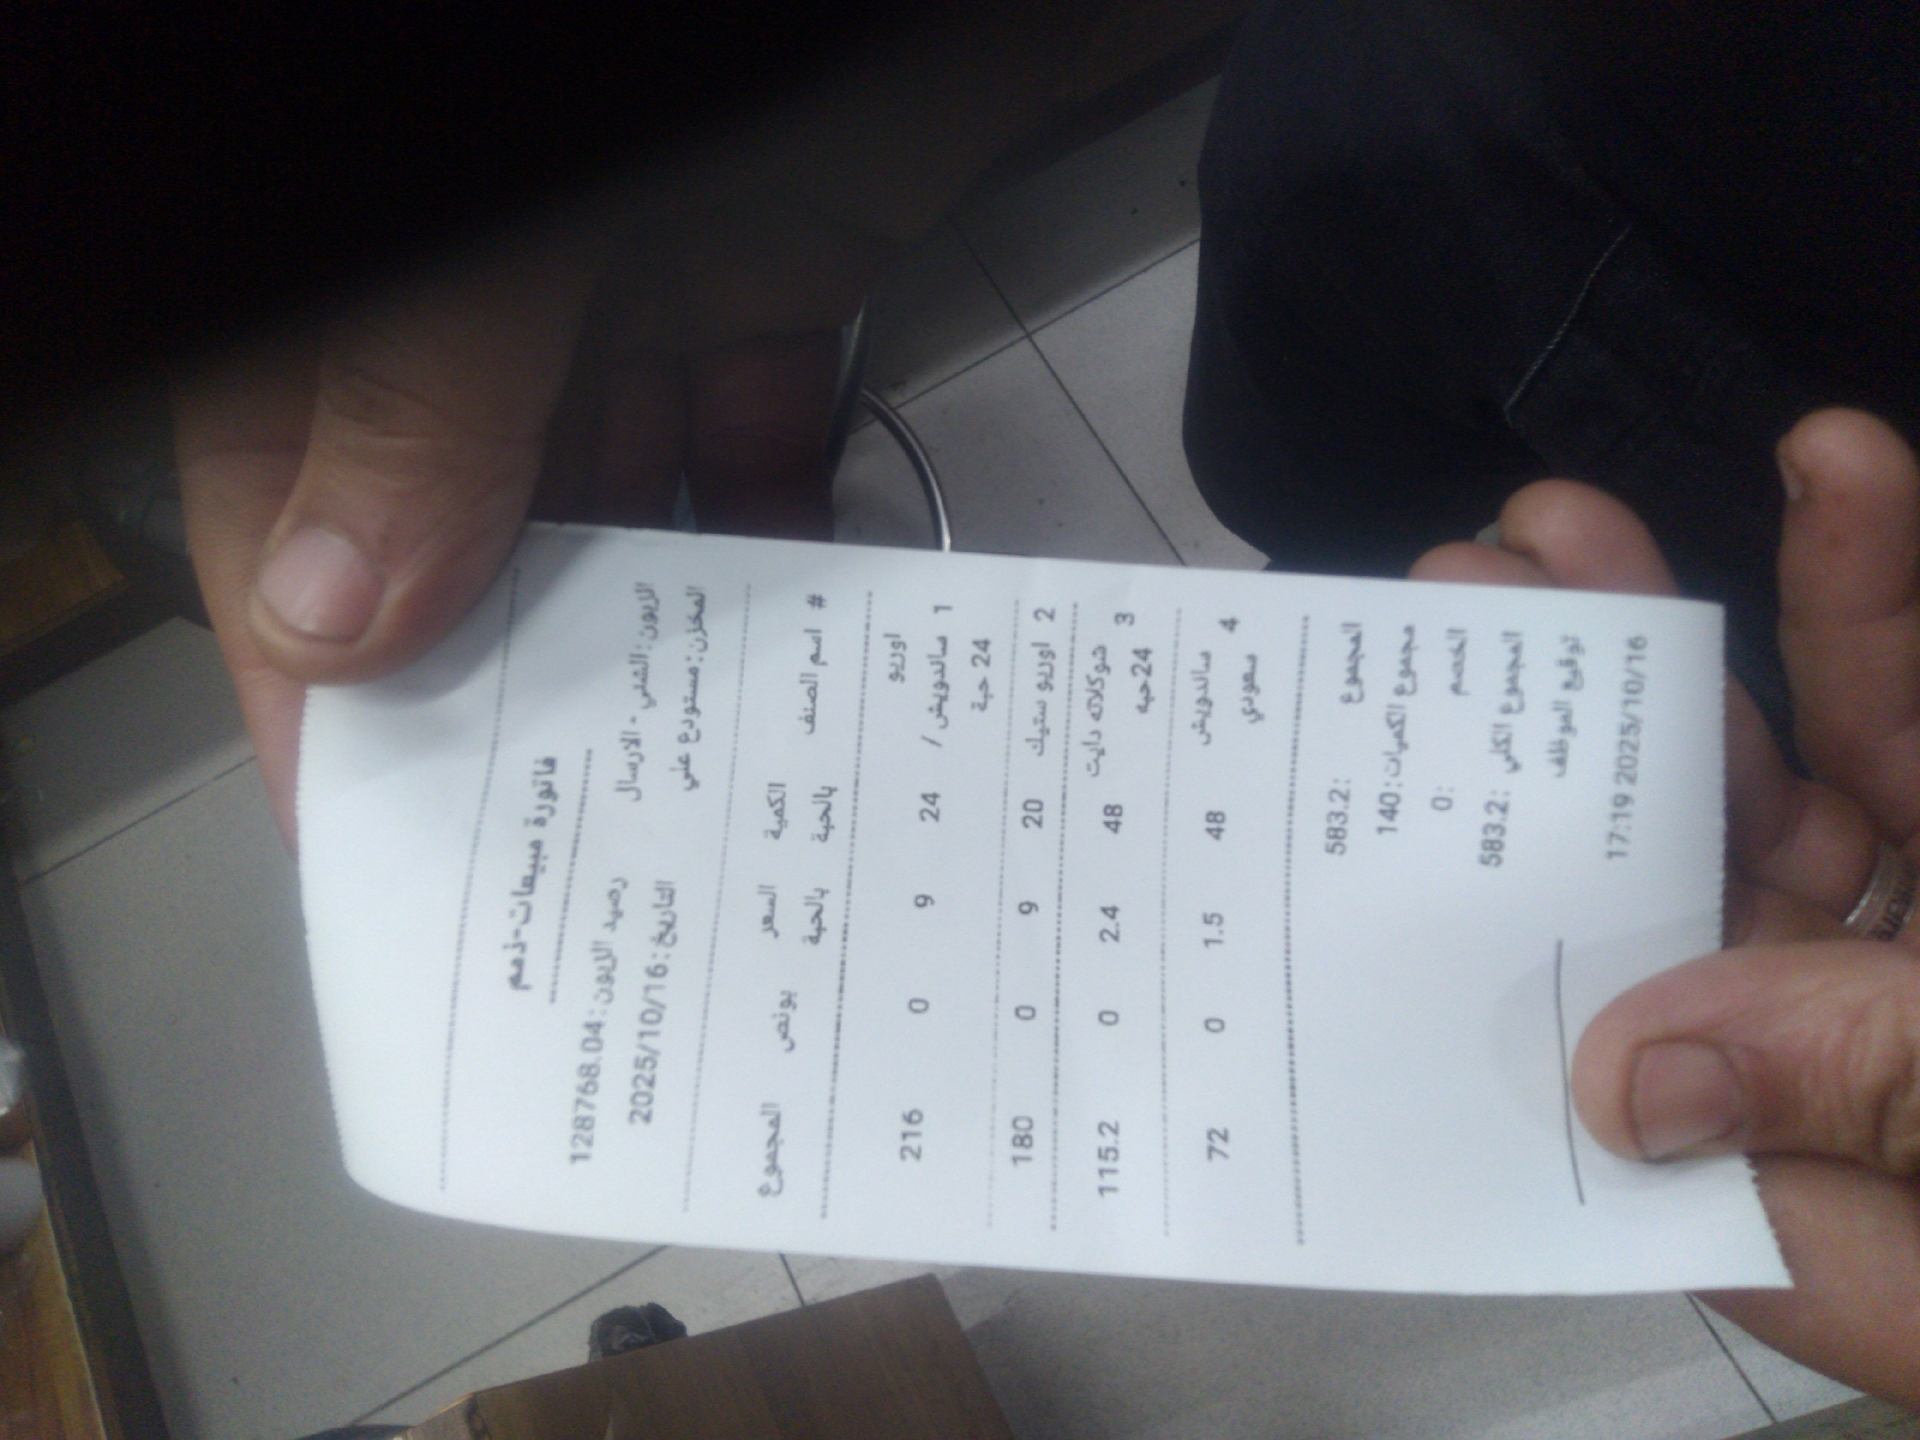 فاتورة مبيعات-ذمم
الزبون: الشلبي - الارسال رصيد الزبون: 128768.04
المخزن: مستودع علي التاريخ: 2025/10/16
# اسم الصنف الكمية بالحبة السعر بالحبة بونص المجموع
1 اوريو ساندويش / 24 حبة 24 9 0 216
2 اوريو ستيك 20 9 0 180
3 شوكلاته دايت 24حبه 48 2.4 0 115.2
4 ساندويش سعودي 48 1.5 0 72
المجموع : 583.2
مجموع الكميات : 140
الخصم : 0
المجموع الكلي : 583.2
توقيع الموظف
17:19 2025/10/16